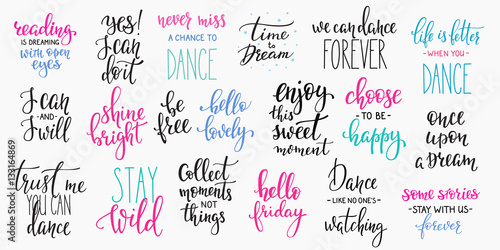 reading
IS DREAMING
with open
eyes
yes!
I can
do it
never miss
A CHANCE TO
DANCE
time
to
Dream
we can dance
FOREVER
life is better
WHEN YOU
DANCE
I can
-AND-
I will
shine
bright
be
free
hello
lovely
enjoy
this
sweet
moment
choose
- TO BE -
happy
once
upon
a Dream
trust me
YOU CAN
dance
STAY
wild
Collect
moments
NOT
things
hello
friday
Dance
- LIKE NO ONE'S -
watching
some stories
- STAY WITH US -
forever
© 133164869